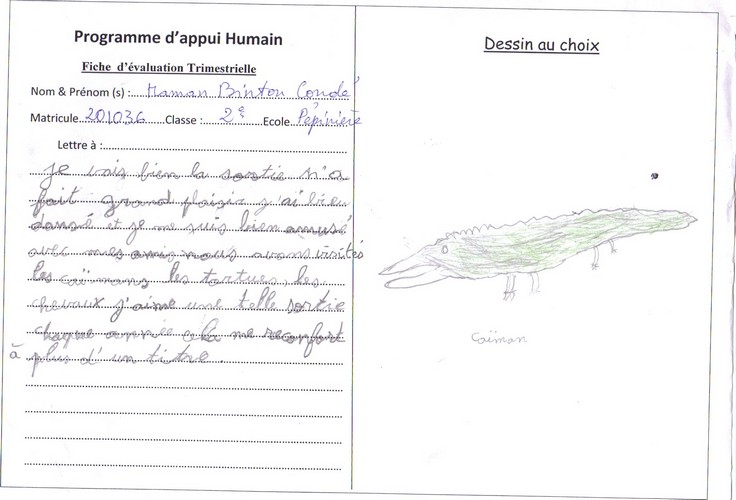 Programme d'appui Humain
Fiche d'évaluation Trimestrielle
Nom & Prénom (s) : Maman Binton Condé
Matricule 201036 Classe : 2e Ecole Pépinière
Lettre à :
Je vais bien la sortie m'a
fait grand plaisir j'ai bien
dansé et je me suis bien amusé
avec mes amis nous avons visités
les caïmans les tortues, les
chevaux j'aime une telle sortie
chaque année cela me réconfort
à plus d'un titre.
Dessin au choix
Caïman